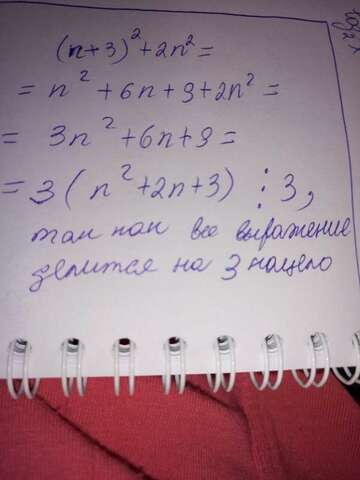 (n+3)²+2n²=
= n²+6n+9+2n²=
= 3n²+6n+9=
= 3(n²+2n+3) ⋮ 3,
так как все выражение
делится на 3 нацело